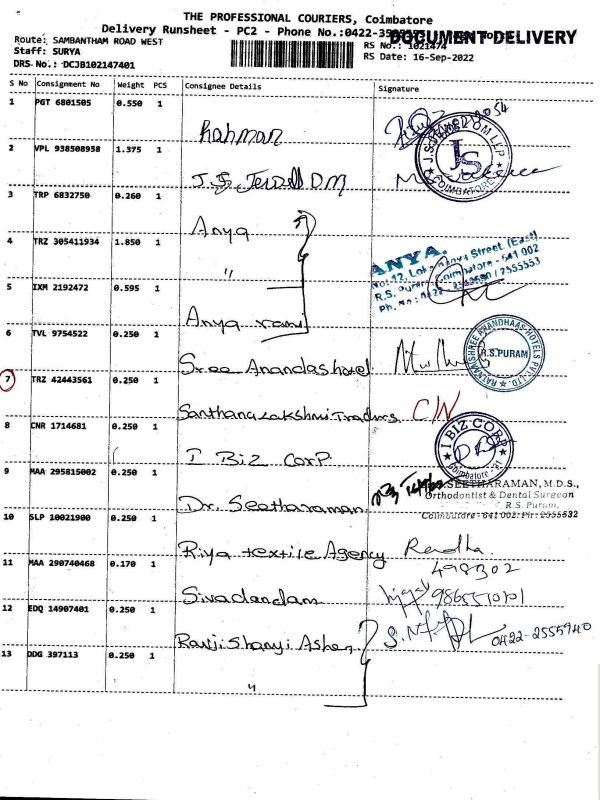 THE PROFESSIONAL COURIERS, Coimbatore
Delivery Runsheet - PC2 - Phone No.:0422-35
DOCUMENT DELIVERY
Route: SAMBANTHAM ROAD WEST
RS No.: 1021474
Staff: SURYA
RS Date: 16-Sep-2022
DRS No.: DCJB102147401
S No Consignment No Weight PCS Consignee Details Signature
1 PGT 6801505 0.550 1 Rahman
2 VPL 938508958 1.375 1 J.S. DM
J.S. COIMBATORE
3 TRP 6832750 0.260 1 Anya
4 TRZ 305411934 1.850 1 "
ANYA.
Street (East)
R.S. Puram, Coimbatore - 641 002
5 IXM 2192472 0.595 1 Anya rami
6 TVL 9754522 0.250 1 Sree Anandas hotel
R.S.PURAM
7 TRZ 42443561 0.250 1 Santhana Lakshmi Traders C/N
8 CNR 1714681 0.250 1 I Biz Corp
I BIZ CORP
Coimbatore
9 MAA 295815002 0.250 1 Dr. Seetharaman
SEETHARAMAN, M.D.S.,
Orthodontist & Dental Surgeon
R.S. Puram,
Coimbatore - 641 002. Ph: 2555532
10 SLP 10021900 0.250 1 Riya textile Agency Radha
498302
11 MAA 290740468 0.170 1 Sivadandam
12 EDQ 14907401 0.250 1 Ranji Shanyi Asher
0422-2555940
13 DDG 397113 0.250 1 "